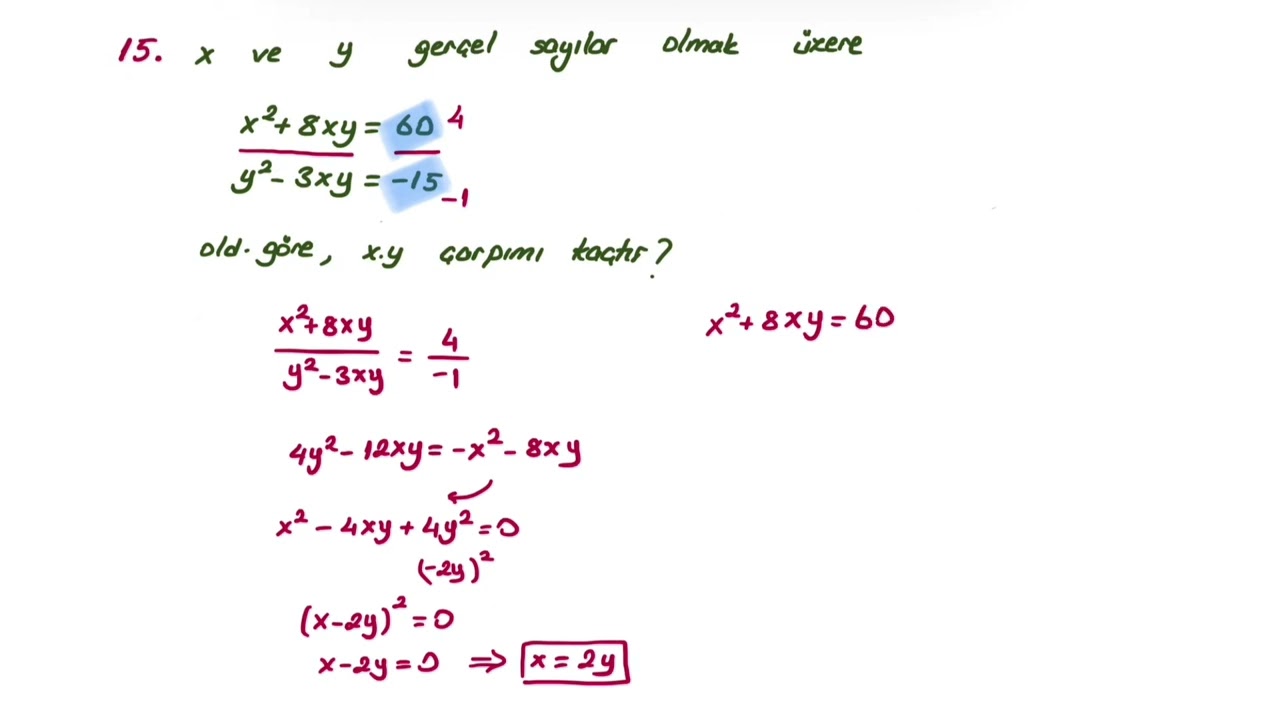 15. x ve y gerçel sayılar olmak üzere
x² + 8xy = 60 4
y² - 3xy = -15 -1
old. göre, x.y çarpımı kaçtır?
x²+8xy / y²-3xy = 4 / -1
4y² - 12xy = -x² - 8xy
x² - 4xy + 4y² = 0
(-2y)²
(x-2y)² = 0
x-2y = 0 ⇒ x = 2y
x² + 8xy = 60